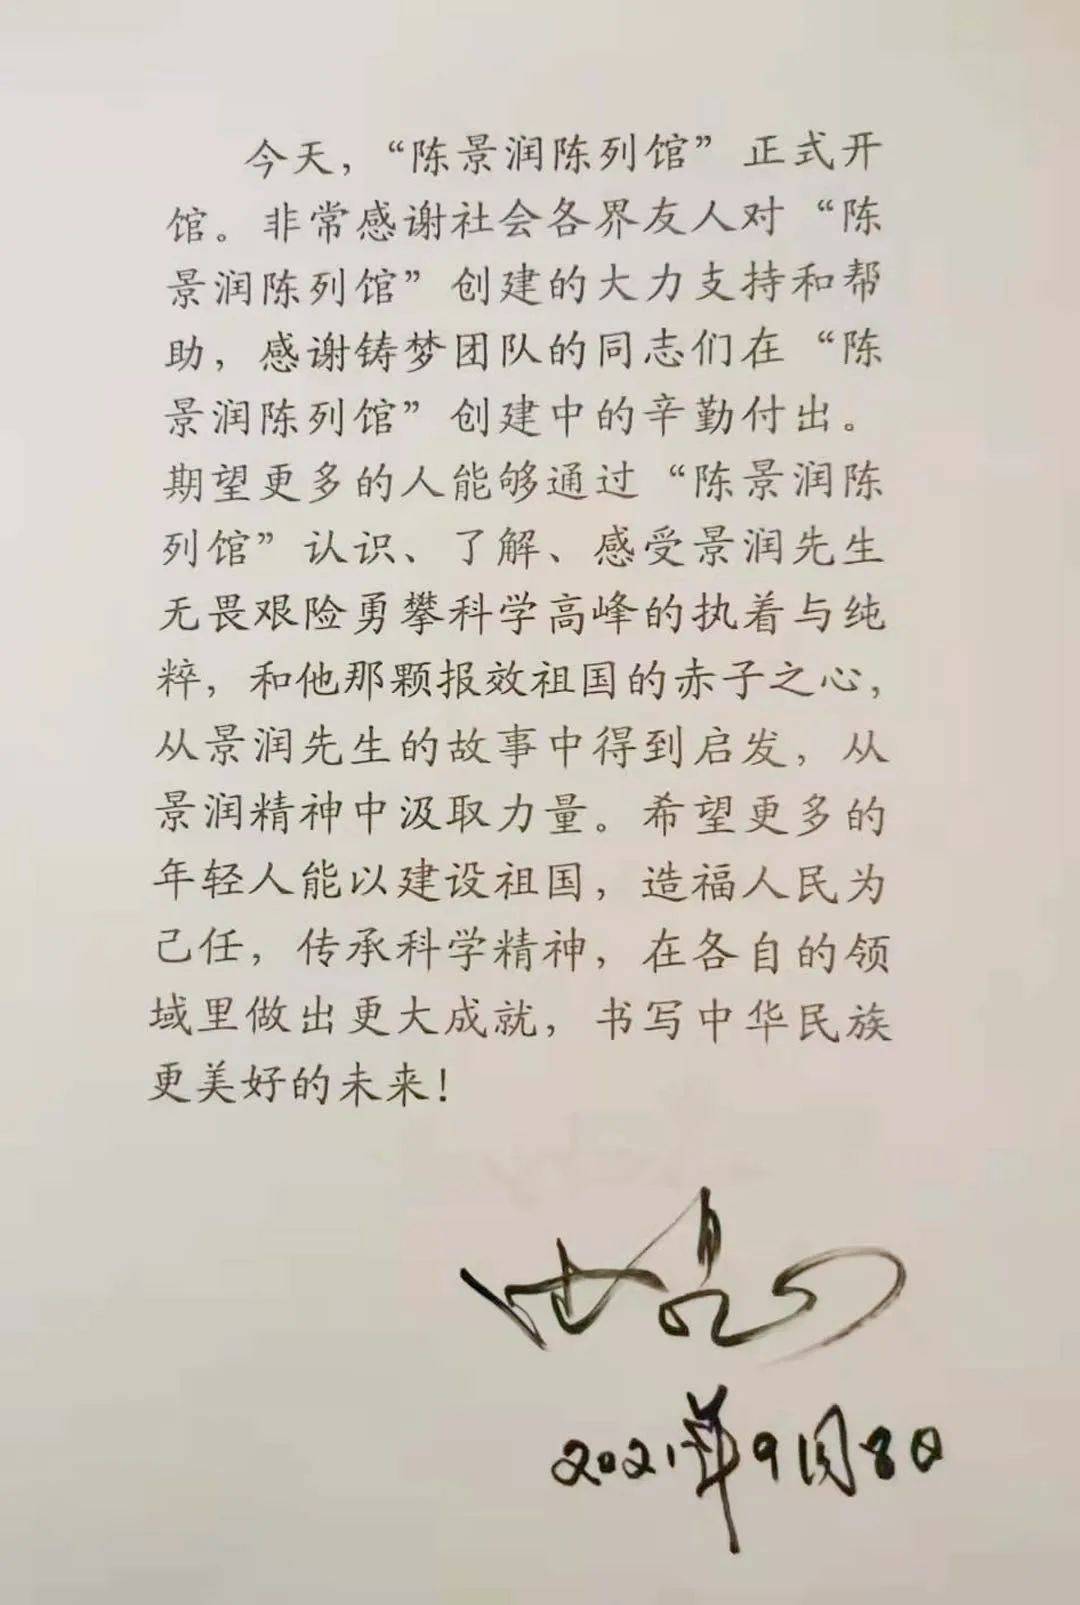 今天，“陈景润陈列馆”正式开
馆。非常感谢社会各界友人对“陈
景润陈列馆”创建的大力支持和帮
助，感谢铸梦团队的同志们在“陈
景润陈列馆”创建中的辛勤付出。
期望更多的人能够通过“陈景润陈
列馆”认识、了解、感受景润先生
无畏艰险勇攀科学高峰的执着与纯
粹，和他那颗报效祖国的赤子之心，
从景润先生的故事中得到启发，从
景润精神中汲取力量。希望更多的
年轻人能以建设祖国，造福人民为
己任，传承科学精神，在各自的领
域里做出更大成就，书写中华民族
更美好的未来！
2021年9月8日